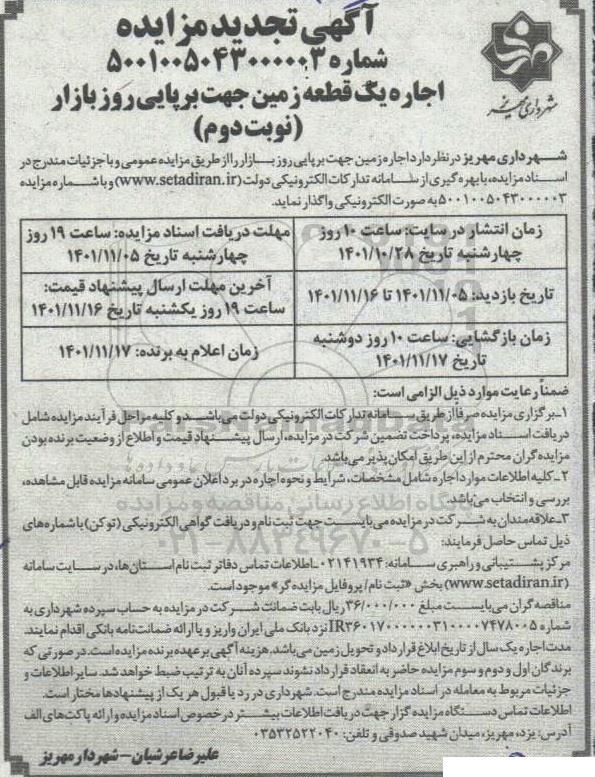 آگهی تجدید مزایده
شماره ۵۰۰۱۰۰۵۰۴۳۰۰۰۰۰۳
اجاره یک قطعه زمین جهت برپایی روز بازار
(نوبت دوم)
شهرداری مهریز
شهرداری مهریز در نظر دارد اجاره زمین جهت برپایی روز بازار را از طریق مزایده عمومی و با جزئیات مندرج در
اسناد مزایده، با بهره گیری از سامانه تدارکات الکترونیکی دولت (www.setadiran.ir) و با شماره مزایده
۵۰۰۱۰۰۵۰۴۳۰۰۰۰۰۳ به صورت الکترونیکی واگذار نماید.
زمان انتشار در سایت: ساعت ۱۰ روز
چهارشنبه تاریخ ۱۴۰۱/۱۰/۲۸
مهلت دریافت اسناد مزایده: ساعت ۱۹ روز
چهارشنبه تاریخ ۱۴۰۱/۱۱/۰۵
تاریخ بازدید: ۱۴۰۱/۱۱/۰۵ تا ۱۴۰۱/۱۱/۱۶
آخرین مهلت ارسال پیشنهاد قیمت:
ساعت ۱۹ روز یکشنبه تاریخ ۱۴۰۱/۱۱/۱۶
زمان بازگشایی: ساعت ۱۰ روز دوشنبه
تاریخ ۱۴۰۱/۱۱/۱۷
زمان اعلام به برنده: ۱۴۰۱/۱۱/۱۷
ضمناً رعایت موارد ذیل الزامی است:
۱ـ برگزاری مزایده صرفاً از طریق سامانه تدارکات الکترونیکی دولت می باشد و کلیه مراحل فرآیند مزایده شامل
دریافت اسناد مزایده، پرداخت تضمین شرکت در مزایده، ارسال پیشنهاد قیمت و اطلاع از وضعیت برنده بودن
مزایده گران محترم از این طریق امکان پذیر می باشد.
۲ـ کلیه اطلاعات موارد اجاره شامل مشخصات، شرایط و نحوه اجاره در برد اعلان عمومی سامانه مزایده قابل مشاهده،
بررسی و انتخاب می باشد.
۳ـ علاقه مندان به شرکت در مزایده می بایست جهت ثبت نام و دریافت گواهی الکترونیکی (توکن) با شماره های
ذیل تماس حاصل فرمایند:
مرکز پشتیبانی و راهبری سامانه: ۰۲۱۴۱۹۳۴ـ اطلاعات تماس دفاتر ثبت نام استان ها، در سایت سامانه
(www.setadiran.ir) بخش «ثبت نام/ پروفایل مزایده گر» موجود است.
مناقصه گران می بایست مبلغ ۳۶/۰۰۰/۰۰۰ ریال بابت ضمانت شرکت در مزایده به حساب سپرده شهرداری به
شماره IR۳۶۰۱۷۰۰۰۰۰۰۳۱۰۰۰۰۷۴۷۸۰۰۵ نزد بانک ملی ایران واریز و یا ارائه ضمانت نامه بانکی اقدام نمایند.
مدت اجاره یک سال از تاریخ ابلاغ قرارداد و تحویل زمین می باشد. هزینه آگهی بر عهده برنده مزایده است. در صورتی که
برندگان اول و دوم و سوم مزایده حاضر به انعقاد قرارداد نشوند سپرده آنان به ترتیب ضبط خواهد شد. سایر اطلاعات و
جزئیات مربوط به معامله در اسناد مزایده مندرج است. شهرداری در رد یا قبول هر یک از پیشنهادها مختار است.
اطلاعات تماس دستگاه مزایده گزار جهت دریافت اطلاعات بیشتر در خصوص اسناد مزایده و ارائه پاکت های الف
آدرس: یزد، مهریز، میدان شهید صدوقی و تلفن: ۰۳۵۳۲۵۲۲۰۴۰
علیرضا عرشیان - شهردار مهریز
ParsNamadData
پایگاه اطلاع رسانی مناقصه و مزایده
۰۲۱-۸۸۳۴۹۶۷۰-۵